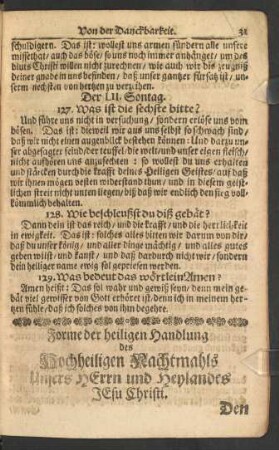 Von der Danckbarkeit. 31
schuldigern. Das ist: wollest uns armen sündern alle unsere
missethat/ auch das böse/ so uns noch immer anhänget/ um des
bluts Christi willen nicht zurechnen/ wie auch wir dis zeugniß
deiner gnade in uns befinden/ daß unser gantzer fürsatz ist/ un-
serm nechsten von hertzen zu verzeihen.
Der LII. Sontag.
127. Was ist die sechste bitte?
Und führe uns nicht in versuchung/ sondern erlöse uns vom
bösen. Das ist: dieweil wir aus uns selbst so schwach sind/
daß wir nicht einen augenblick bestehen können: Und darzu un-
ser abgesagter feind/ der teuffel/ die welt/ und unser eigen fleisch/
nicht aufhören uns anzufechten: so wollest du uns erhalten
und stärcken durch die krafft deines Heiligen Geistes/ auf daß
wir ihnen mögen vesten widerstand thun/ und in diesem geist-
lichen streit nicht unten liegen/ biß daß wir endlich den sieg voll-
kömmlich behalten.
128. Wie beschleussst du diß gebät?
Dann dein ist das reich/ und die krafft/ und die herrlichkeit
in ewigkeit. Das ist: solches alles bitten wir darum von dir/
daß du unser könig/ und aller dinge mächtig/ und alles gutes
geben wilst/ und kanst/ und daß dardurch nicht wir/ sondern
dein heiliger name ewig sol gepriesen werden.
129. Was bedeut das wörtlein Amen?
Amen heist: Das sol wahr und gewiß seyn/ denn mein ge-
bät viel gewisser von Gott erhöret ist/ denn ich in meinem her-
tzen fühle/ daß ich solches von ihm begehre.
Forme der heiligen Handlung
des
Hochheiligen Nachtmahls
Unsers HErrn und Heylandes
JEsu Christi.
Den